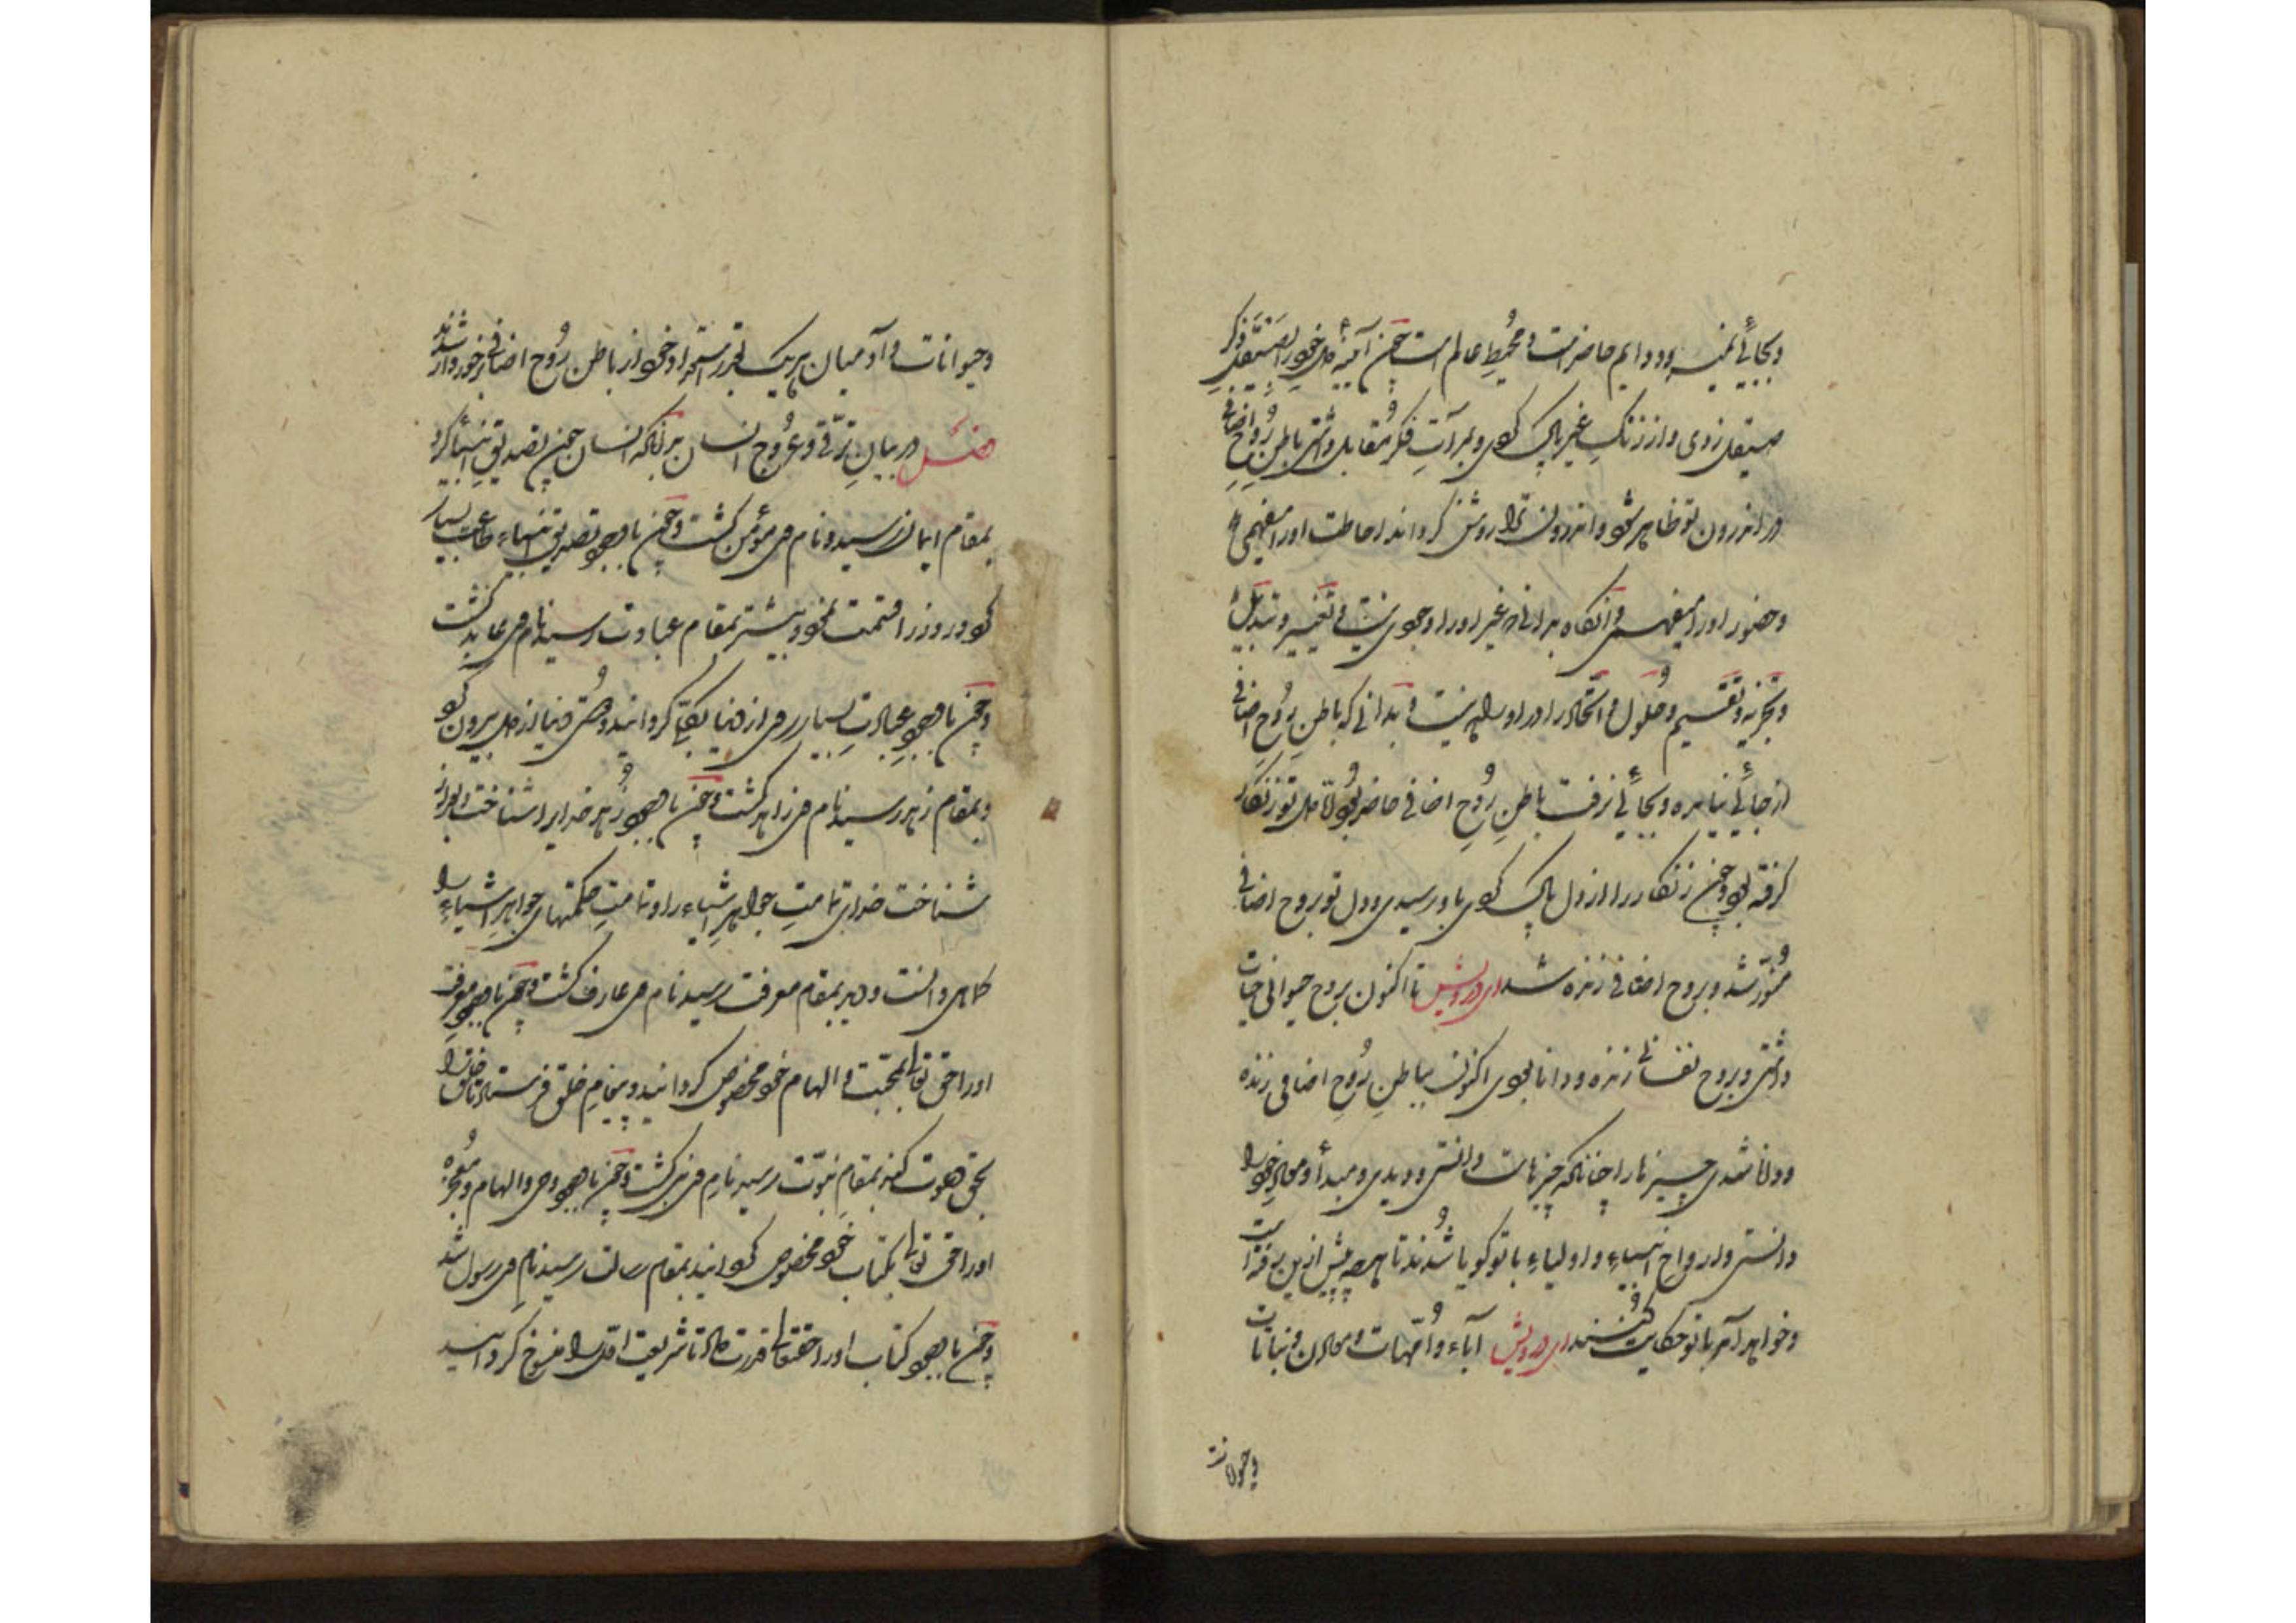 وبجائے نمیرود و دایم حاضر است و محیط عالم است چون آیینهٔ دل خود را بصیقل ذکر
صیقل زدی و از زنک غیر پاک کردی و بمرآت فکر مقابل داشتی باطن روح اضافی
در اندرون تو ظاهر شود و اندرون ترا روشن کرداند احاطت او را بفهمی
و حضور او را بفهمی و آنکاه بدانی که غیر او را وجودی نیست و تغییر و تبدیل
و تجزیه و تقسیم و حلول و اتحاد را در او راه نیست و بدانی که باطن روح اضافی
از جائی نیامده و بجائی نرفت باطن روح اضافی حاضر بود امّا دل تو زنکار
کرفته بود چون زنکار را از دل پاک کردی باو رسیدی و دل تو بروح اضافی
منوّر شد و بروح اضافی زنده شد ای درویش تا اکنون بروح حیوانی حیات
داشتی و بروح نفسانی زنده و دانا بودی اکنون بباطن روح اضافی زنده
و دانا شدی چیزها را چنانکه چیزهاست دانستی و دیدی و مبدأ و معاد خود را
دانستی و ارواح انبیاء و اولیاء با تو کویا شدند تا هرچه پیش ازین رفته است
و خواهد آمد با تو حکایت کنند ای درویش آباء و اُمّهات و معادن و نباتات
و حیوانات
و حیوانات و آدمیان هر یک بقدر استعداد خود از باطن روح اضافی برخوردار شدند
فصل در بیان ترقّی و عروج انسان بدانکه انسان چون تصدیق انبیا کرد
بمقام ایمان رسید و نام وی مؤمن کشت و چون با وجود تصدیق انبیاء طاعت بسیار
کرد و روز را قسمت نمود و بیشتر بمقام عبادت رسید نام وی عابد کشت
و چون با وجود عبادت بسیار روی از دنیا بکلّی کردانید و دوستی دنیا از دل بیرون کرد
و بمقام زهد رسید نام وی زاهد کشت و چون با وجود زهد خدایرا شناخت و بعد از
شناخت خدای تمامت جواهر اشیاء را و تمامت حکمتهای جواهر اشیاء را
کماهی دانست و دید بمقام معرفت رسید نام وی عارف کشت و چون با وجود معرفت
او را حق تعالی بمحبت و الهام خود مخصوص کردانید و به پیغام خلق فرستاد تا خلق را
بحق دعوت کند بمقام نبوّت رسید نام وی نبی کشت و چون با وجود وحی و الهام و معجزه
او را حق تعالی بکتاب خود مخصوص کردانید بمقام رسالت رسید نام وی رسول شد
و چون با وجود کتاب او را حقتعالی قدرت داد تا شریعت اوّل را منسوخ کردانید